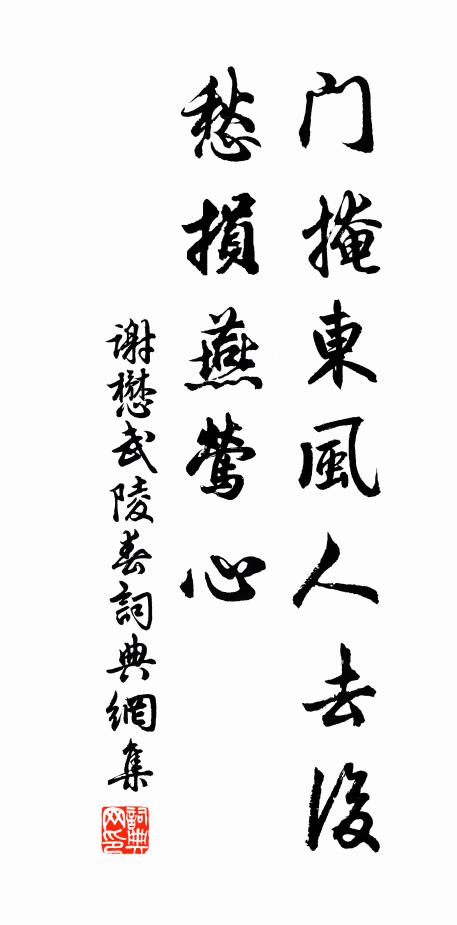 门掩東風人去後
愁損燕鶯心
谢懋武陵春詞典網集
詞典网印